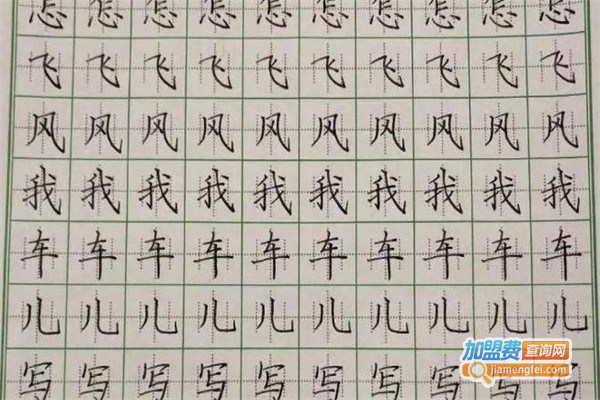 怎怎怎怎怎怎怎怎怎怎
飞飞飞飞飞飞飞飞飞飞
风风风风风风风风风风
我我我我我我我我我我
车车车车车车车车车车
儿儿儿儿儿儿儿儿儿儿
写写写写写写写写写写
加盟费查询网
jiamengfei.com